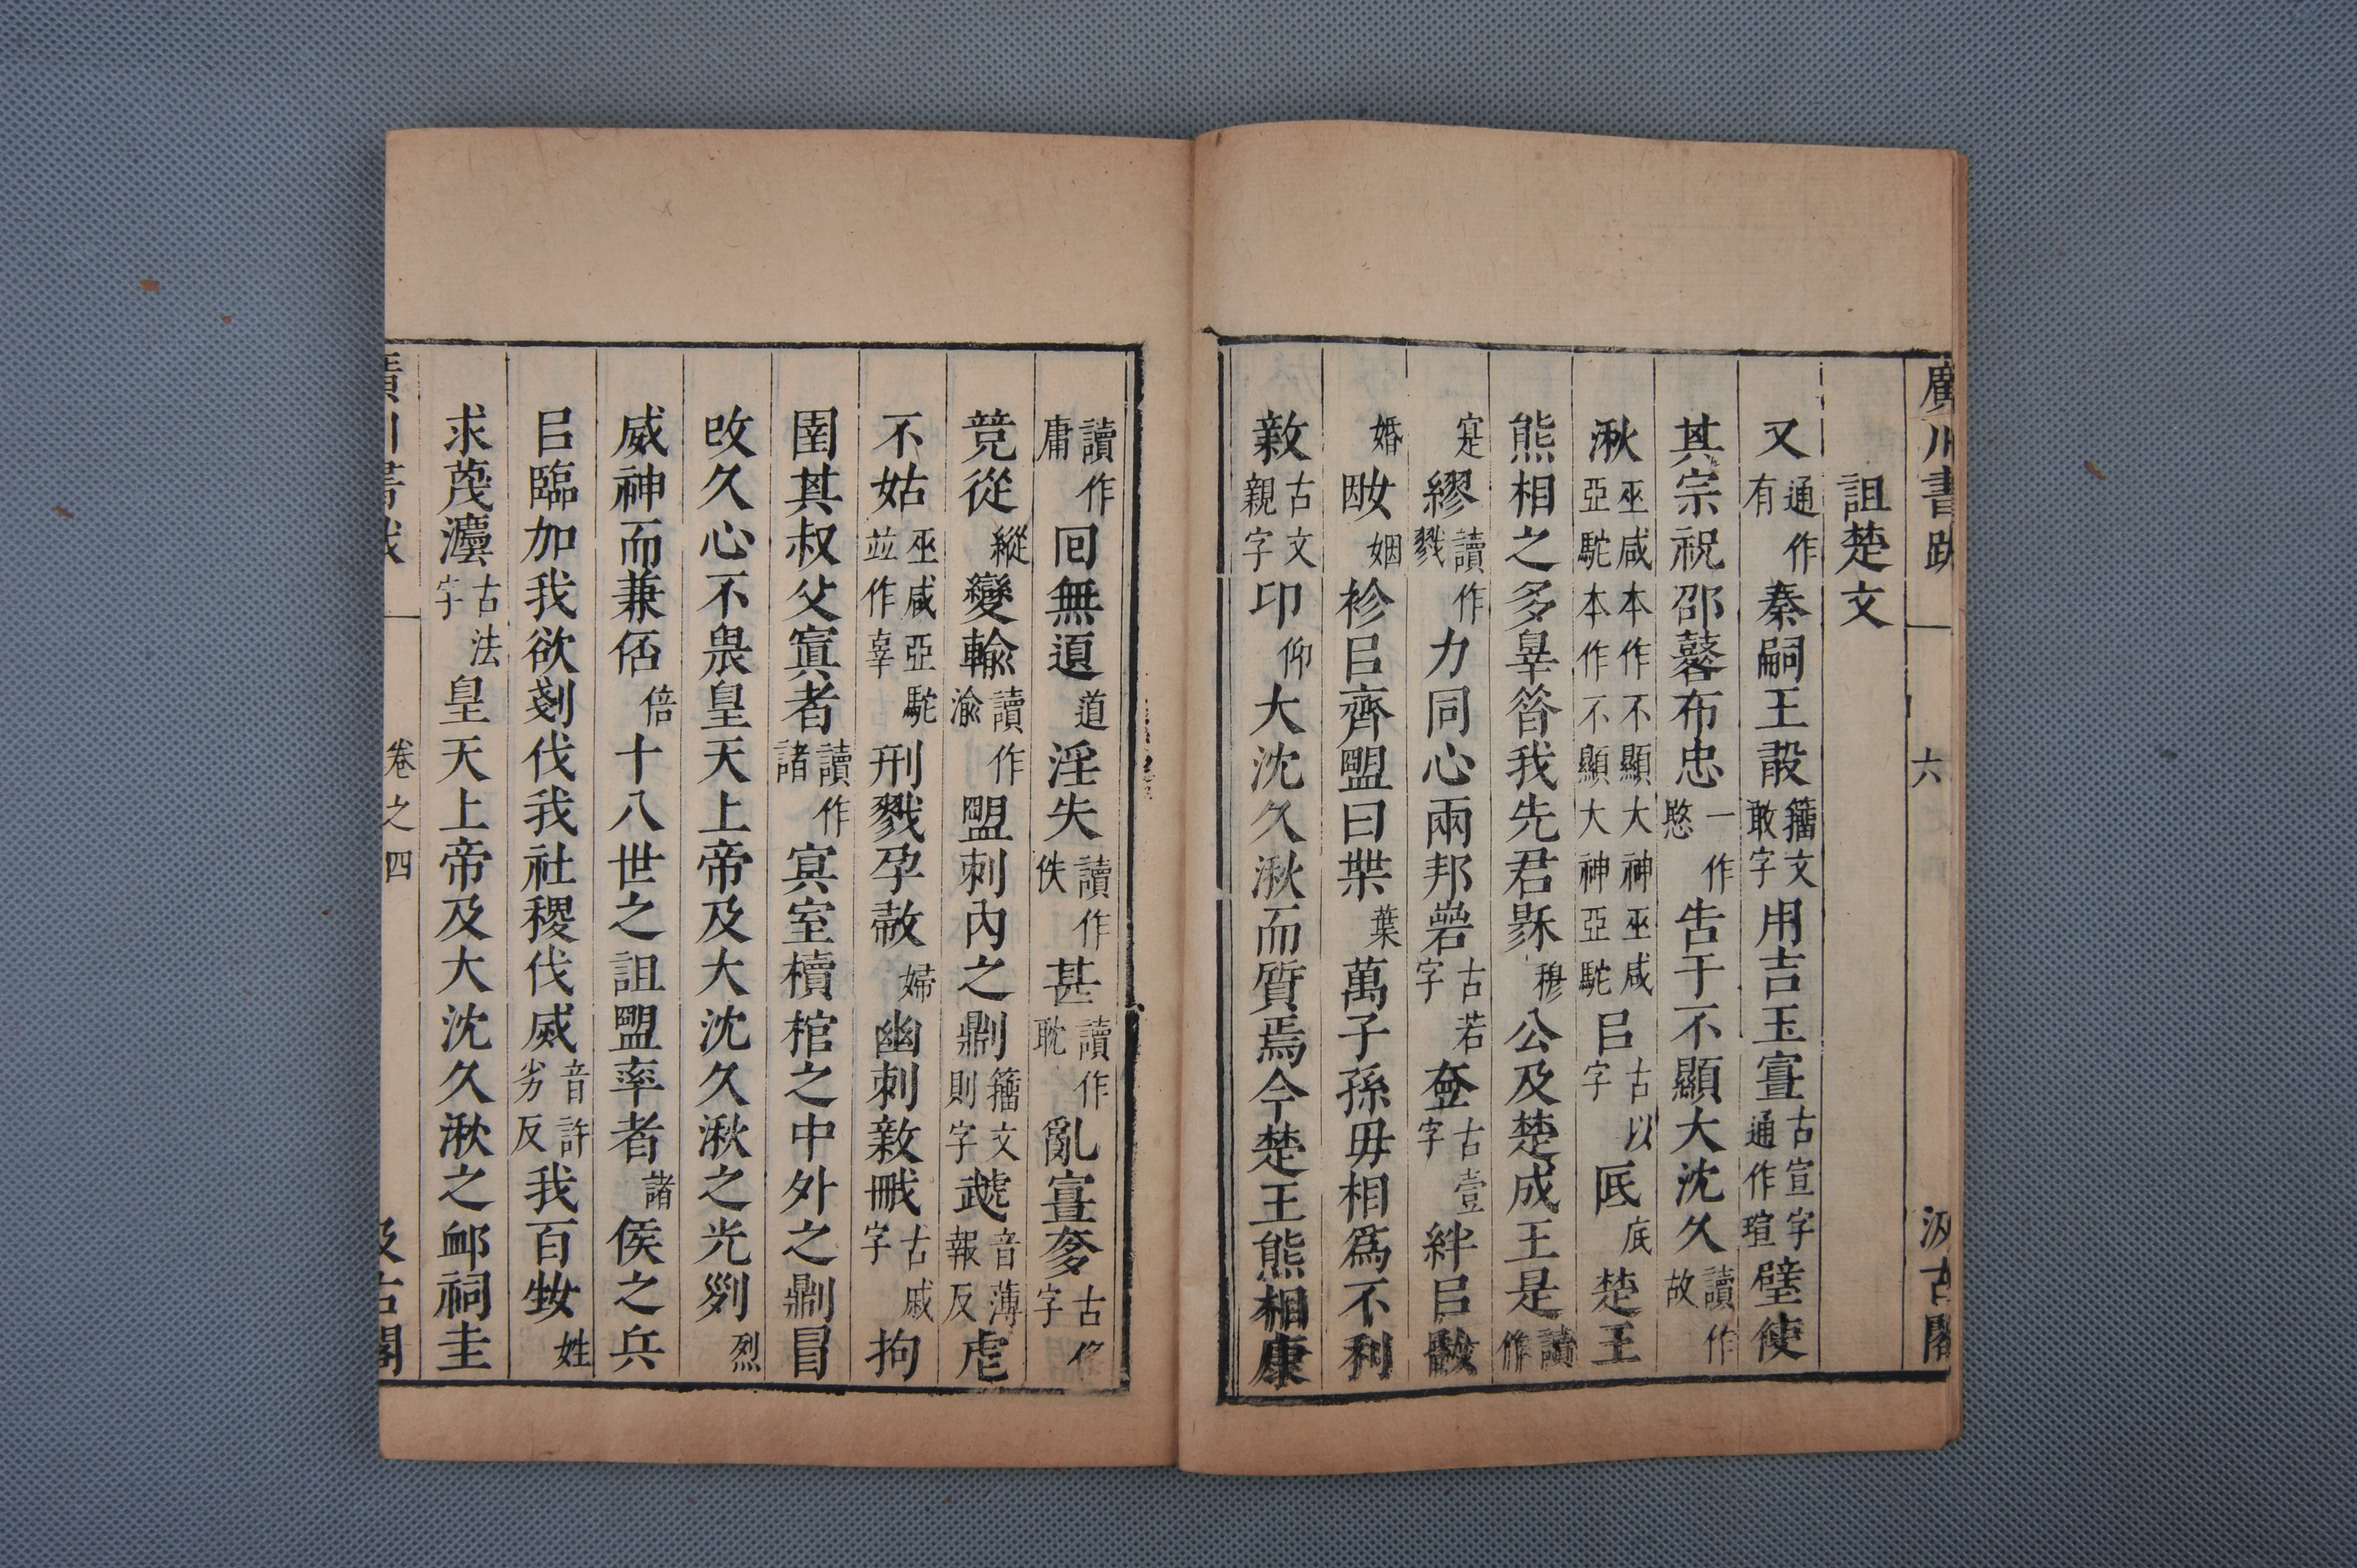 廣川書跋 六 汲古閣
詛楚文
又通作有秦嗣王敢籀文敢字用吉玉宣古宣字通作瑄璧使
其宗祝邵鼛布忠一作愍告于不顯大沈久讀作故
湫巫咸本作不顯大神巫咸亞駝本作不顯大神亞駝㠯古以字㡳底楚王
熊相之多辠昝我先君㣎穆公及楚成王是讀作
寔繆讀作戮力同心兩邦䓤古若字壹古壹字絆㠯
婚㛰姻袗㠯齊盟曰枼葉萬子孫毋相爲不利
敹古文親字卬仰大沈久湫而質焉今楚王熊相康
讀作庸回無道道淫失讀作佚甚讀作耽亂宣奓古侈字
競從縱變輸讀作渝盟刺內之鼎則籀文則字虣音薄報反虐
不姑巫咸亞駝並作辜刑戮孕婦婦幽刺敹戚古戚字拘
圉其叔父寘者讀作諸冥室櫝棺之中外之則冒
改久心不畏皇天上帝及大沈久湫之光剡烈
威神而兼倍倍十八世之詛盟率者諸侯之兵
㠯臨加我欲剗伐我社稷伐烕音許劣反我百姓姓
求蔑灋古法字皇天上帝及大沈久湫之卹祠圭
卷之四